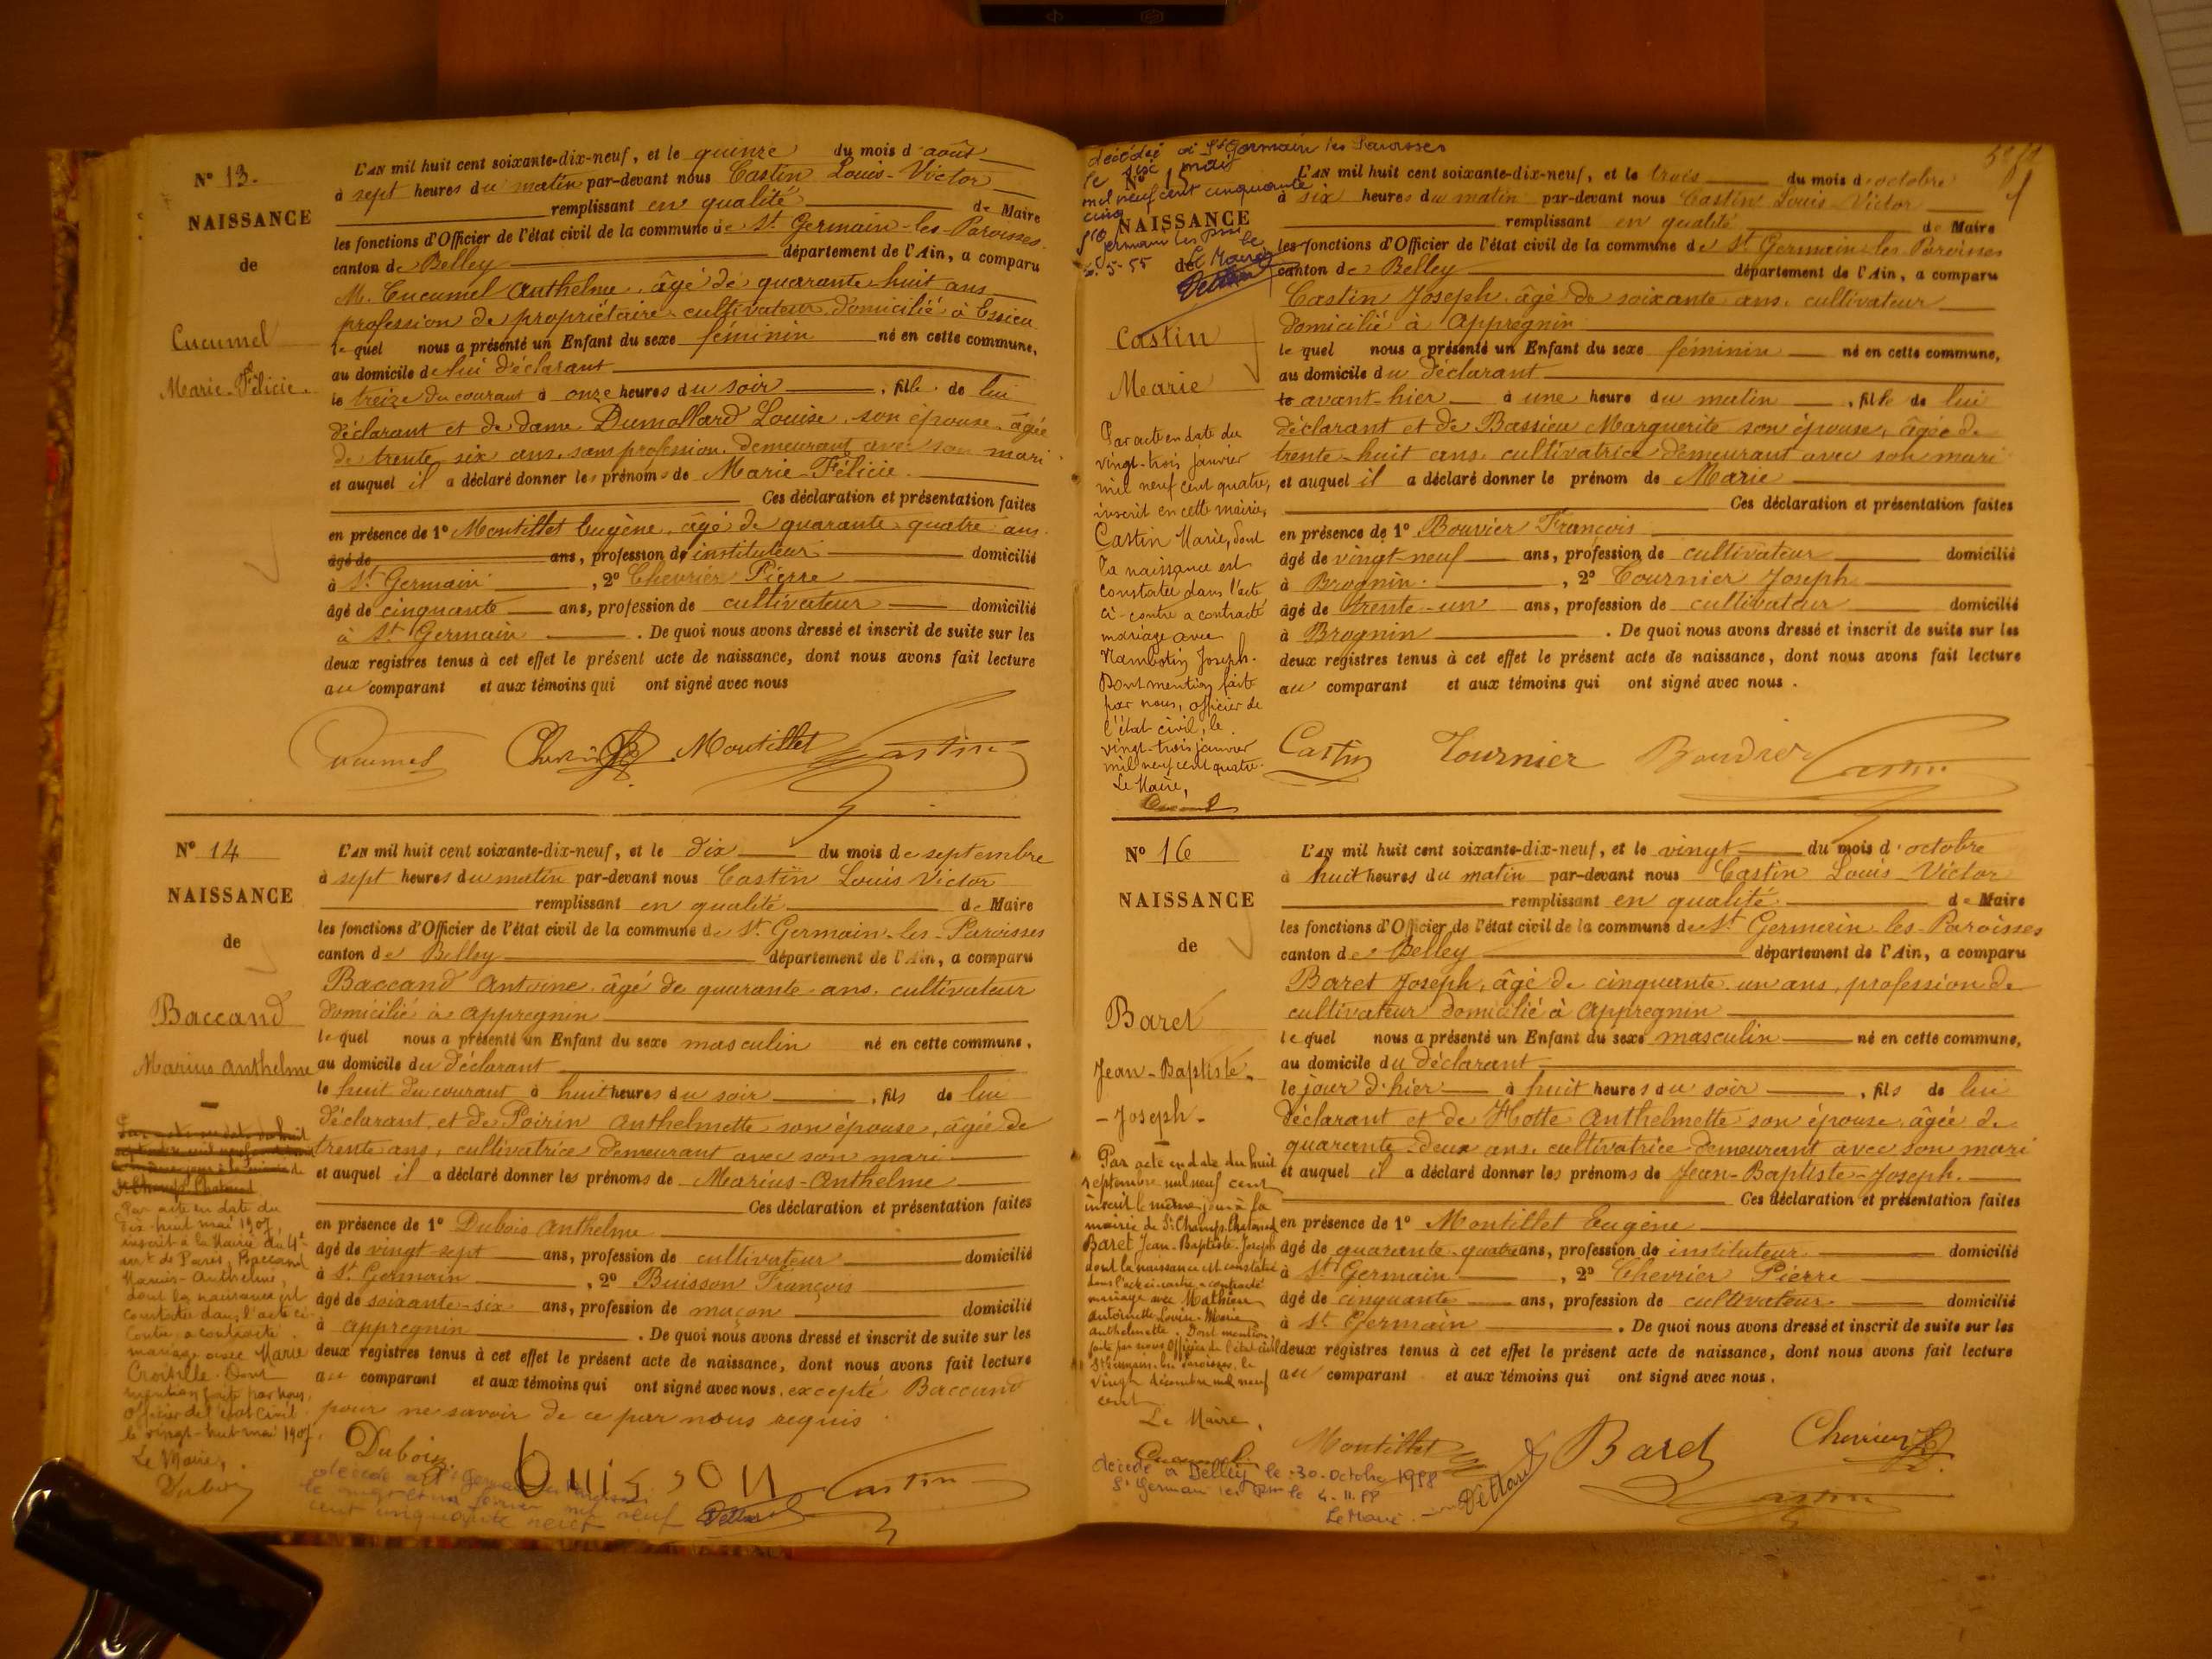 N° 13.
NAISSANCE
de
Cucumel
Marie-Félicie.
L'AN mil huit cent soixante-dix-neuf, et le quinze du mois d'août
à sept heures du matin par-devant nous Castin Louis-Victor
remplissant en qualité de Maire
les fonctions d'Officier de l'état civil de la commune de St Germain-les-Paroisses.
canton de Belley département de l'Ain, a comparu
M. Cucumel Anthelme, âgé de quarante-huit ans
profession de propriétaire cultivateur domicilié à Essieu
lequel nous a présenté un Enfant du sexe féminin né en cette commune,
au domicile de lui déclarant
le treize du courant à onze heures du soir, fille de lui
déclarant et de dame Dumollard Louise, son épouse, âgée
de trente six ans, sans profession, demeurant avec son mari
et auquel il a déclaré donner les prénoms de Marie Félicie
Ces déclaration et présentation faites
en présence de 1° Montillet Eugène, âgé de quarante quatre ans
âgé de ans, profession de instituteur domicilié
à St Germain, 2° Chevrier Pierre
âgé de cinquante ans, profession de cultivateur domicilié
à St Germain. De quoi nous avons dressé et inscrit de suite sur les
deux registres tenus à cet effet le présent acte de naissance, dont nous avons fait lecture
au comparant et aux témoins qui ont signé avec nous
Cucumel Chevrier Montillet Castin
N° 14
NAISSANCE
de
Baccand
Marius Anthelme
Par acte en date du
dix-huit mai 1907,
inscrit à la Mairie du 4e
arrt de Paris, Baccand
Marius-Anthelme,
dont la naissance est
constatée dans l'acte ci-
contre a contracté
mariage avec Marie
Dont
mention faite par nous,
Officier de l'état civil
le vingt-huit mai 1907.
Le Maire,
L'AN mil huit cent soixante-dix-neuf, et le dix du mois de septembre
à sept heures du matin par-devant nous Castin Louis Victor
remplissant en qualité de Maire
les fonctions d'Officier de l'état civil de la commune de St Germain-les-Paroisses
canton de Belley département de l'Ain, a comparu
Baccand Antoine âgé de quarante ans, cultivateur
domicilié à Appregnin
lequel nous a présenté un Enfant du sexe masculin né en cette commune,
au domicile du déclarant
le huit du courant à huit heures du soir, fils de lui
déclarant, et de Poirin Anthelmette son épouse, âgée de
trente ans, cultivatrice demeurant avec son mari
et auquel il a déclaré donner les prénoms de Marius-Anthelme
Ces déclaration et présentation faites
en présence de 1° Dubois Anthelme
âgé de vingt-sept ans, profession de cultivateur domicilié
à St Germain, 2° Buisson François
âgé de soixante-six ans, profession de maçon domicilié
à Appregnin. De quoi nous avons dressé et inscrit de suite sur les
deux registres tenus à cet effet le présent acte de naissance, dont nous avons fait lecture
au comparant et aux témoins qui ont signé avec nous, excepté Baccand
pour ne savoir de ce par nous requis
Dubois Buisson Castin
décédé à St Germain les Paroisses
le neuf
cent cinquante neuf
décédée à St Germain les Paroisses
le six mai
mil neuf cent cinquante
cinq
St Germain les Psses le
6-5-55 Le Maire
N°
NAISSANCE
de
Castin
Marie
Par acte en date du
vingt-trois janvier
mil neuf cent quatre,
inscrit en cette mairie,
Castin Marie, dont
la naissance est
constatée dans l'acte
ci-contre a contracté
mariage avec
Nambotin Joseph.
Dont mention faite
par nous, officier de
l'état civil, le
vingt-trois janvier
mil neuf cent quatre.
Le Maire,
L'AN mil huit cent soixante-dix-neuf, et le trois du mois d'octobre
à six heures du matin par-devant nous Castin Louis Victor
remplissant en qualité de Maire
les fonctions d'Officier de l'état civil de la commune de St Germain-les-Paroisses
canton de Belley département de l'Ain, a comparu
Castin Joseph âgé de soixante ans, cultivateur
domicilié à Appregnin
lequel nous a présenté un Enfant du sexe féminin né en cette commune,
au domicile du déclarant
le avant-hier à une heure du matin, fille de lui
déclarant et de Bassieu Marguerite son épouse, âgée de
trente-huit ans, cultivatrice demeurant avec son mari
et auquel il a déclaré donner le prénom de Marie
Ces déclaration et présentation faites
en présence de 1° Bouvier François
âgé de vingt-neuf ans, profession de cultivateur domicilié
à Brognin, 2° Tournier Joseph
âgé de trente-un ans, profession de cultivateur domicilié
à Brognin. De quoi nous avons dressé et inscrit de suite sur les
deux registres tenus à cet effet le présent acte de naissance, dont nous avons fait lecture
au comparant et aux témoins qui ont signé avec nous.
Castin Tournier Castin
N° 16
NAISSANCE
de
Baret
Jean-Baptiste-
-Joseph-
Par acte en date du huit
septembre mil neuf cent
inscrit le même jour à la
mairie de St Champ-Chatonod
Baret Jean-Baptiste-Joseph
dont la naissance est constatée
dans l'acte ci-contre a contracté
mariage avec Mathieu
Antoinette-Louise-Marie
Anthelmette. Dont mention
faite par nous Officier de l'état civil
St Germain-les-Paroisses, le
vingt décembre mil neuf
cent
Le Maire,
L'AN mil huit cent soixante-dix-neuf, et le vingt du mois d'octobre
à huit heures du matin par-devant nous Castin Louis-Victor
remplissant en qualité de Maire
les fonctions d'Officier de l'état civil de la commune de St Germain-les-Paroisses
canton de Belley département de l'Ain, a comparu
Baret Joseph, âgé de cinquante-un ans, profession de
cultivateur domicilié à Appregnin
lequel nous a présenté un Enfant du sexe masculin né en cette commune,
au domicile du déclarant
le jour d'hier à huit heures du soir, fils de lui
déclarant et de Hotte Anthelmette son épouse âgée de
quarante-deux ans, cultivatrice demeurant avec son mari
et auquel il a déclaré donner les prénoms de Jean-Baptiste-Joseph.
Ces déclaration et présentation faites
en présence de 1° Montillet Eugène
âgé de quarante-quatre ans, profession de instituteur domicilié
à St Germain, 2° Chevrier Pierre
âgé de cinquante ans, profession de cultivateur domicilié
à St Germain. De quoi nous avons dressé et inscrit de suite sur les
deux registres tenus à cet effet le présent acte de naissance, dont nous avons fait lecture
au comparant et aux témoins qui ont signé avec nous.
Montillet Baret Chevrier
Castin
décédé à Belley le 30 Octobre
St Germain les Psses le 4.11.
Le Maire